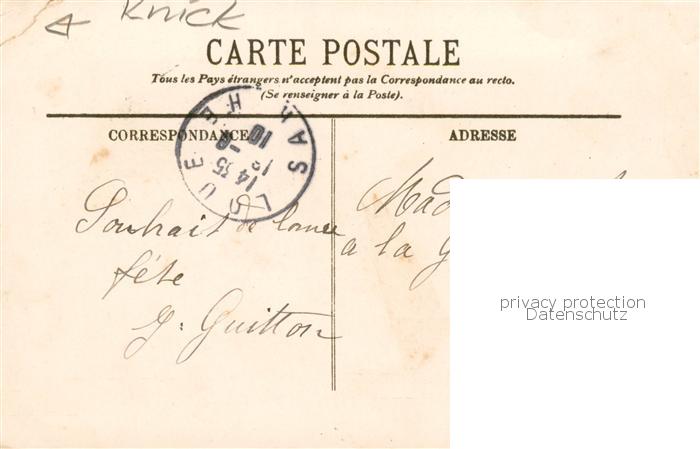 Knick
CARTE POSTALE
Tous les Pays étrangers n'acceptent pas la Correspondance au recto.
(Se renseigner à la Poste).
CORRESPONDANCE
ADRESSE
14 35
Souhait de bonne
fête
G. Guitton
Mad
a la G
privacy protection
Datenschutz